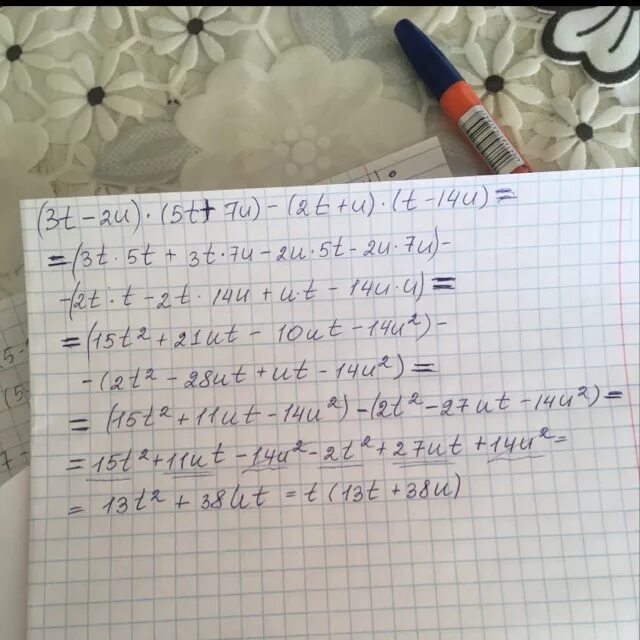 (3t-2u)·(5t+7u)-(2t+u)·(t-14u)=
=(3t·5t+3t·7u-2u·5t-2u·7u)-
-(2t·t-2t·14u+ut-14u·u)=
=(15t²+21ut-10ut-14u²)-
-(2t²-28ut+ut-14u²)=
=(15t²+11ut-14u²)-(2t²-27ut-14u²)=
=15t²+11ut-14u²-2t²+27ut+14u²=
=13t²+38ut=t(13t+38u)